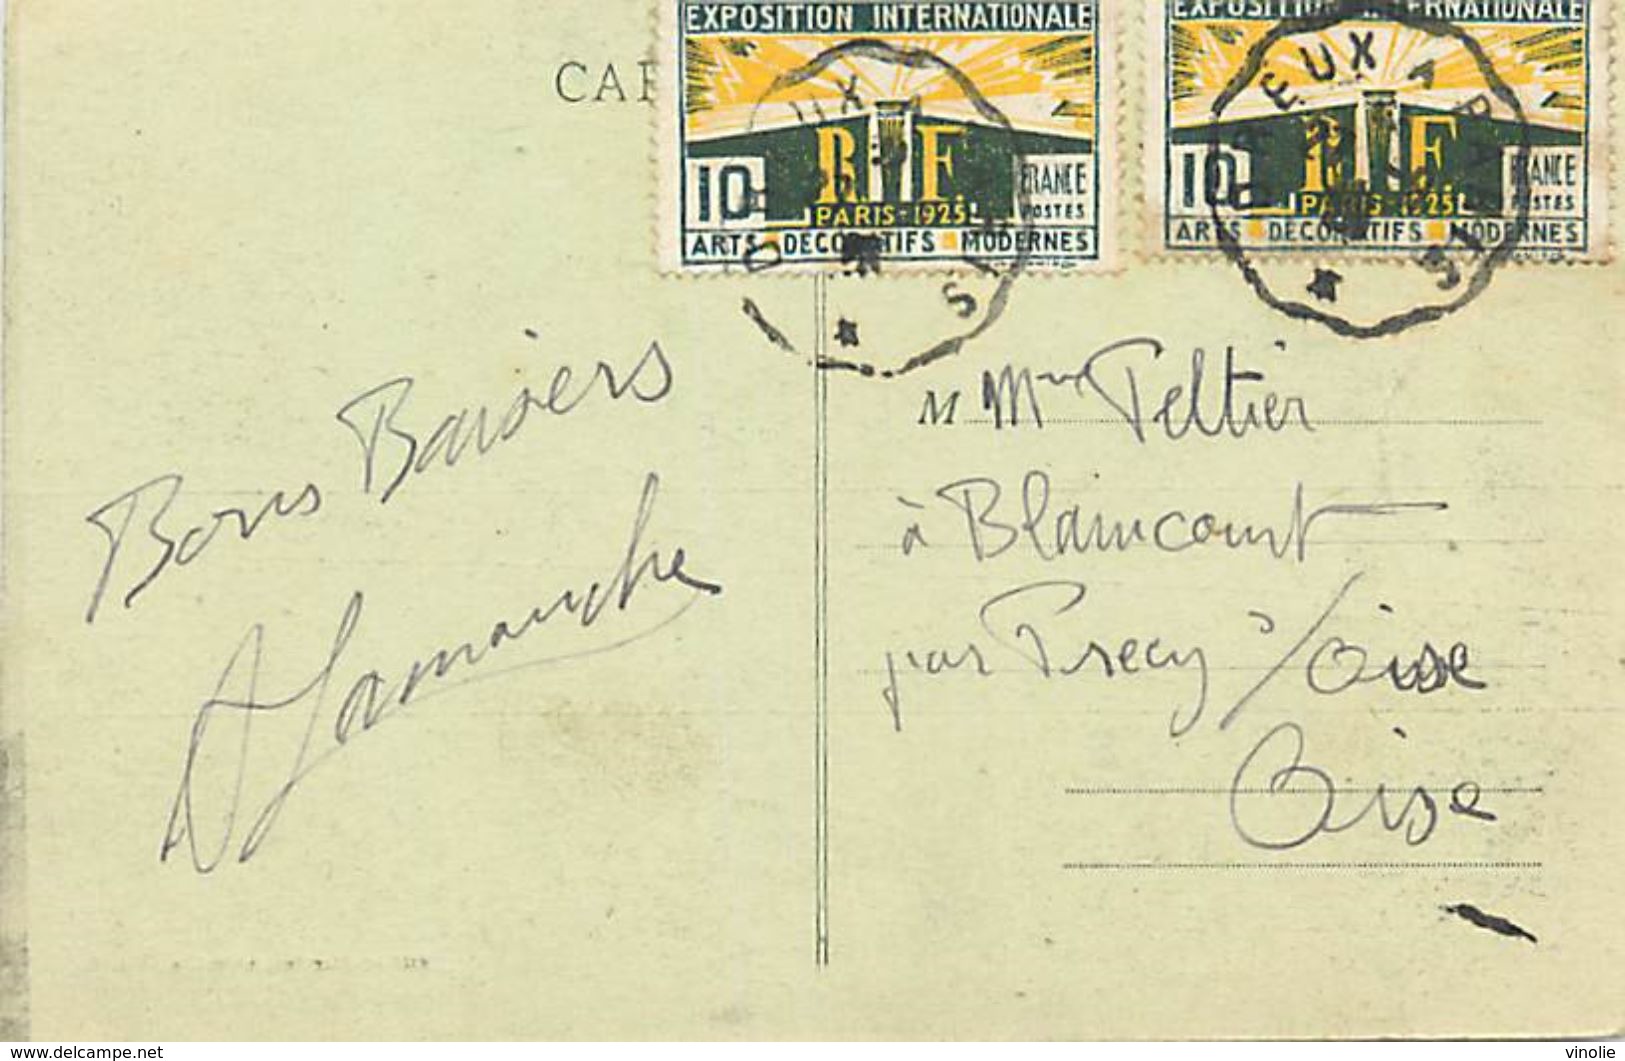 CAR
EXPOSITION INTERNATIONALE
10 R F FRANCE
POSTES
PARIS-1925
ARTS DÉCORATIFS MODERNES
EXPOSITION INTERNATIONALE
10 R F FRANCE
POSTES
PARIS-1925
ARTS DÉCORATIFS MODERNES
DREUX A PARIS
DREUX A PARIS
Bons Baisers
Lamanche
M Mme Peltier
à Blaincourt
par Precy s/Oise
Oise
www.delcampe.net
vinolie